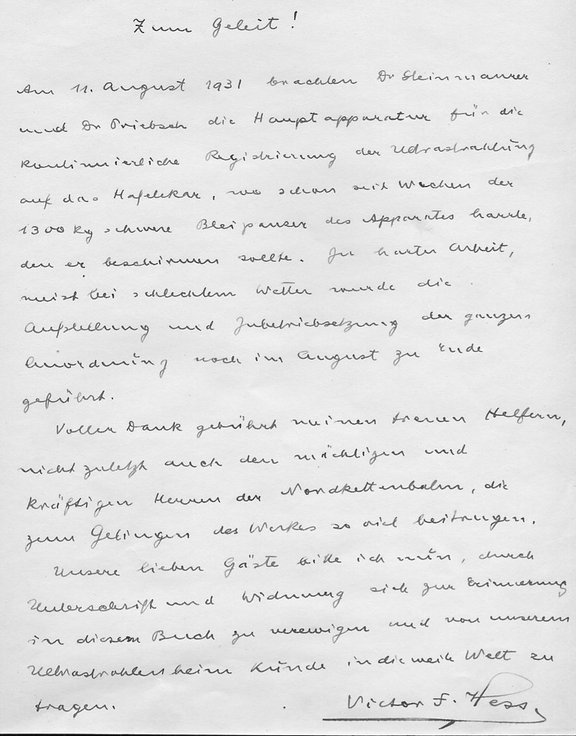 Zum Geleit!
Am 11. August 1931 brachten Dr Steinmaurer
und Dr Priebsch die Hauptapparatur für die
kontinuierliche Registrierung der Ultrastrahlung
auf das Hafelekar, wo schon seit Wochen der
1300 kg schwere Bleipanzer des Apparates harrte,
den er beschirmen sollte. In harter Arbeit,
meist bei schlechtem Wetter wurde die
Aufstellung und Inbetriebsetzung der ganzen
Anordnung noch im August zu Ende
geführt.
Voller Dank gebührt meinen treuen Helfern,
nicht zuletzt auch den mächtigen und
kräftigen Herren der Nordkettenbahn, die
zum Gelingen des Werkes so viel beitrugen.
Unsere lieben Gäste bitte ich nun, durch
Unterschrift und Widmung sich zur Erinnerung
in diesem Buch zu verewigen und von unserem
Ultrastrahlenheim Kunde in die weite Welt zu
tragen. Victor F. Hess